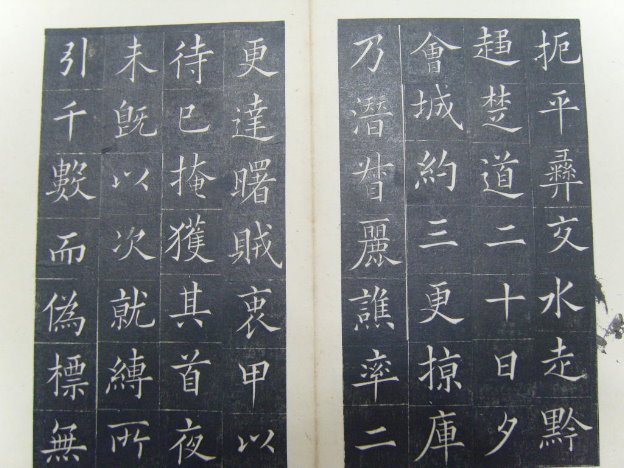 扼平彝交水走黔
趨楚道二十日夕
會城約三更掠庫
乃潛督麗譙率二
更達曙賊衷甲以
待已掩獲其首夜
未旣以次就縛所
引千數而偽標無